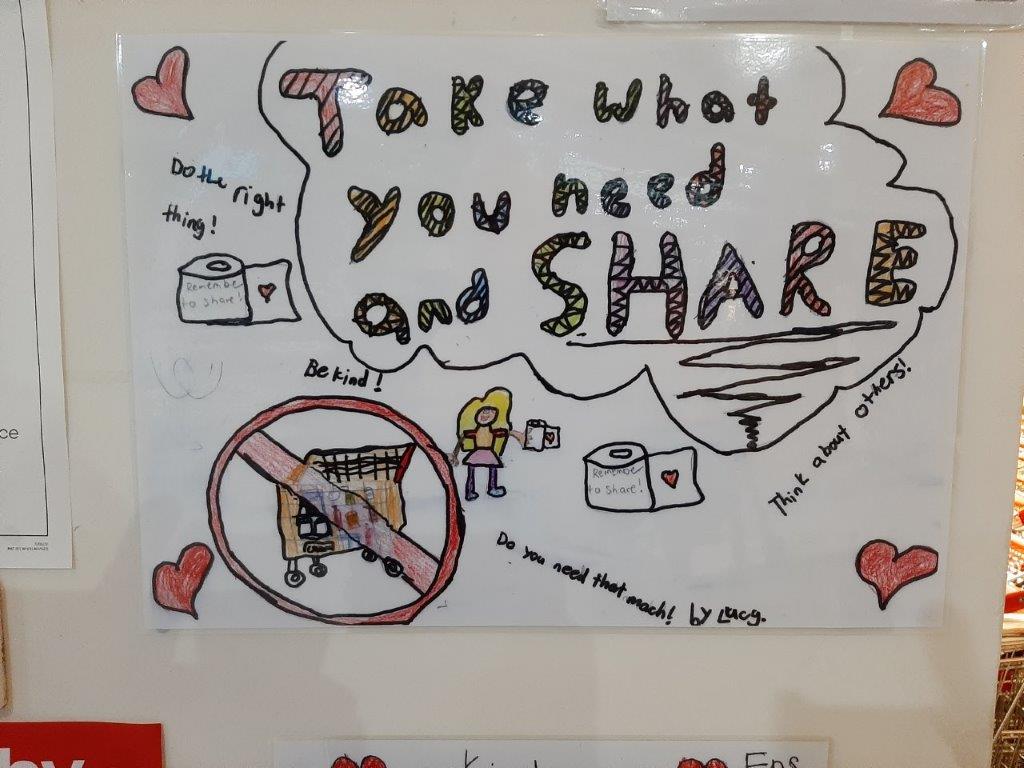 Take what
you need
and SHARE
Do the right
thing!
Remember
to share!
Be kind!
Remember
to share!
Think about others!
Do you need that mach! by Lucy.
ce
by
Eps